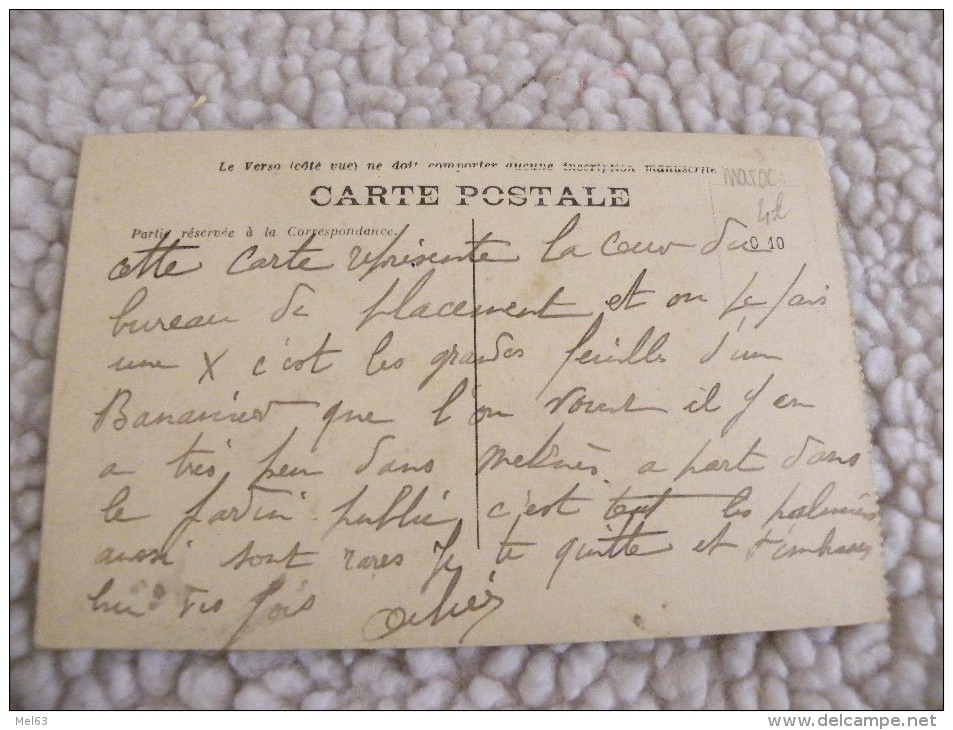 Le Verso (côté vue) ne doit comporter aucune inscription manuscrite
CARTE POSTALE
maroc
Partie réservée à la Correspondance.
0 10
cette carte représente la cour du
bureau de placement et on je fais
une X c'est les grandes feuilles d'un
Bananier que l'on voient il y en
a très peu dans meknès a part dans
le jardin public, c'est tout les palmiers
aussi sont rares Je te quitte et t'embrasse
bien fois
Delwende.net
Mel63